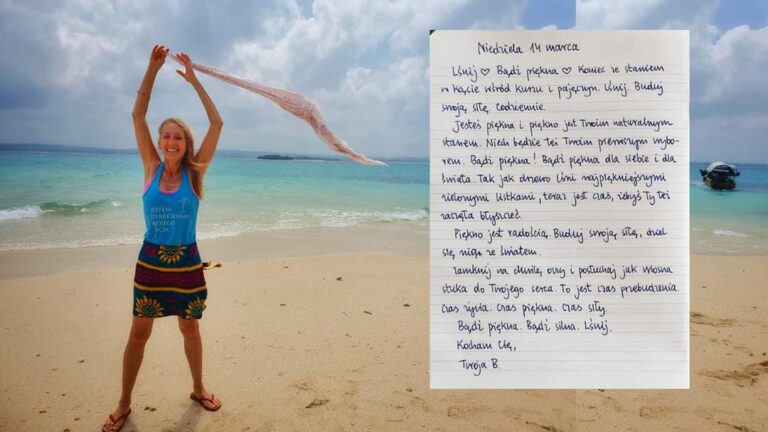 JESTEM
DYREKTOREM
SWOJEGO
ŻYCIA
Niedziela 14 marca
Lśnij ♡ Bądź piękna ♡ Koniec ze staniem
w kącie wśród kurzu i pajęczyn. Lśnij. Buduj
swoją siłę. Codziennie.
Jesteś piękna i piękno jest Twoim naturalnym
stanem. Niech będzie też Twoim pierwszym wybo-
rem. Bądź piękna! Bądź piękna dla siebie i dla
świata. Tak jak drzewo lśni najpiękniejszymi
zielonymi listkami, teraz jest czas, żebyś Ty też
zaczęła błyszczeć.
Piękno jest radością. Buduj swoją siłę, dziel
się nią ze światem.
Zamknij na chwilę oczy i posłuchaj jak wiosna
stuka do Twojego serca. To jest czas przebudzenia.
Czas życia. Czas piękna. Czas siły.
Bądź piękna. Bądź silna. Lśnij.
Kocham Cię,
Twoja B.